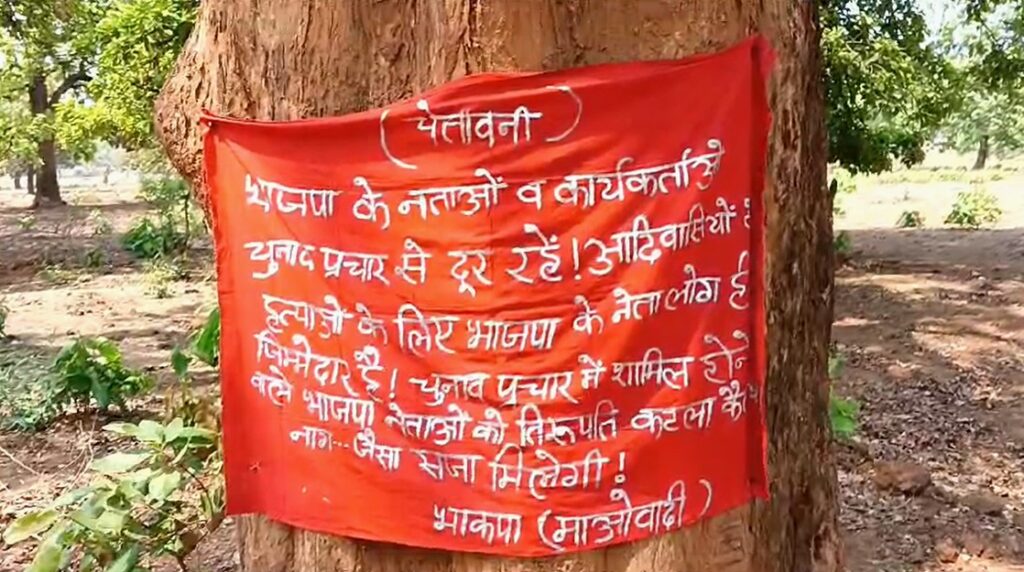 (चेतावनी)
भाजपा के नताओं व कार्यकर्ताओ
चुनाव प्रचार से दूर रहें! आदिवासियों
हत्याओ के लिए भाजपा के नेता लोग ही
जिम्मेदार है! चुनाव प्रचार में शामिल होने
वाले भाजपा नेताओं को तिरूपति कटला
नाग... जैसा सजा मिलेगी!
भाकपा (माओवादी)